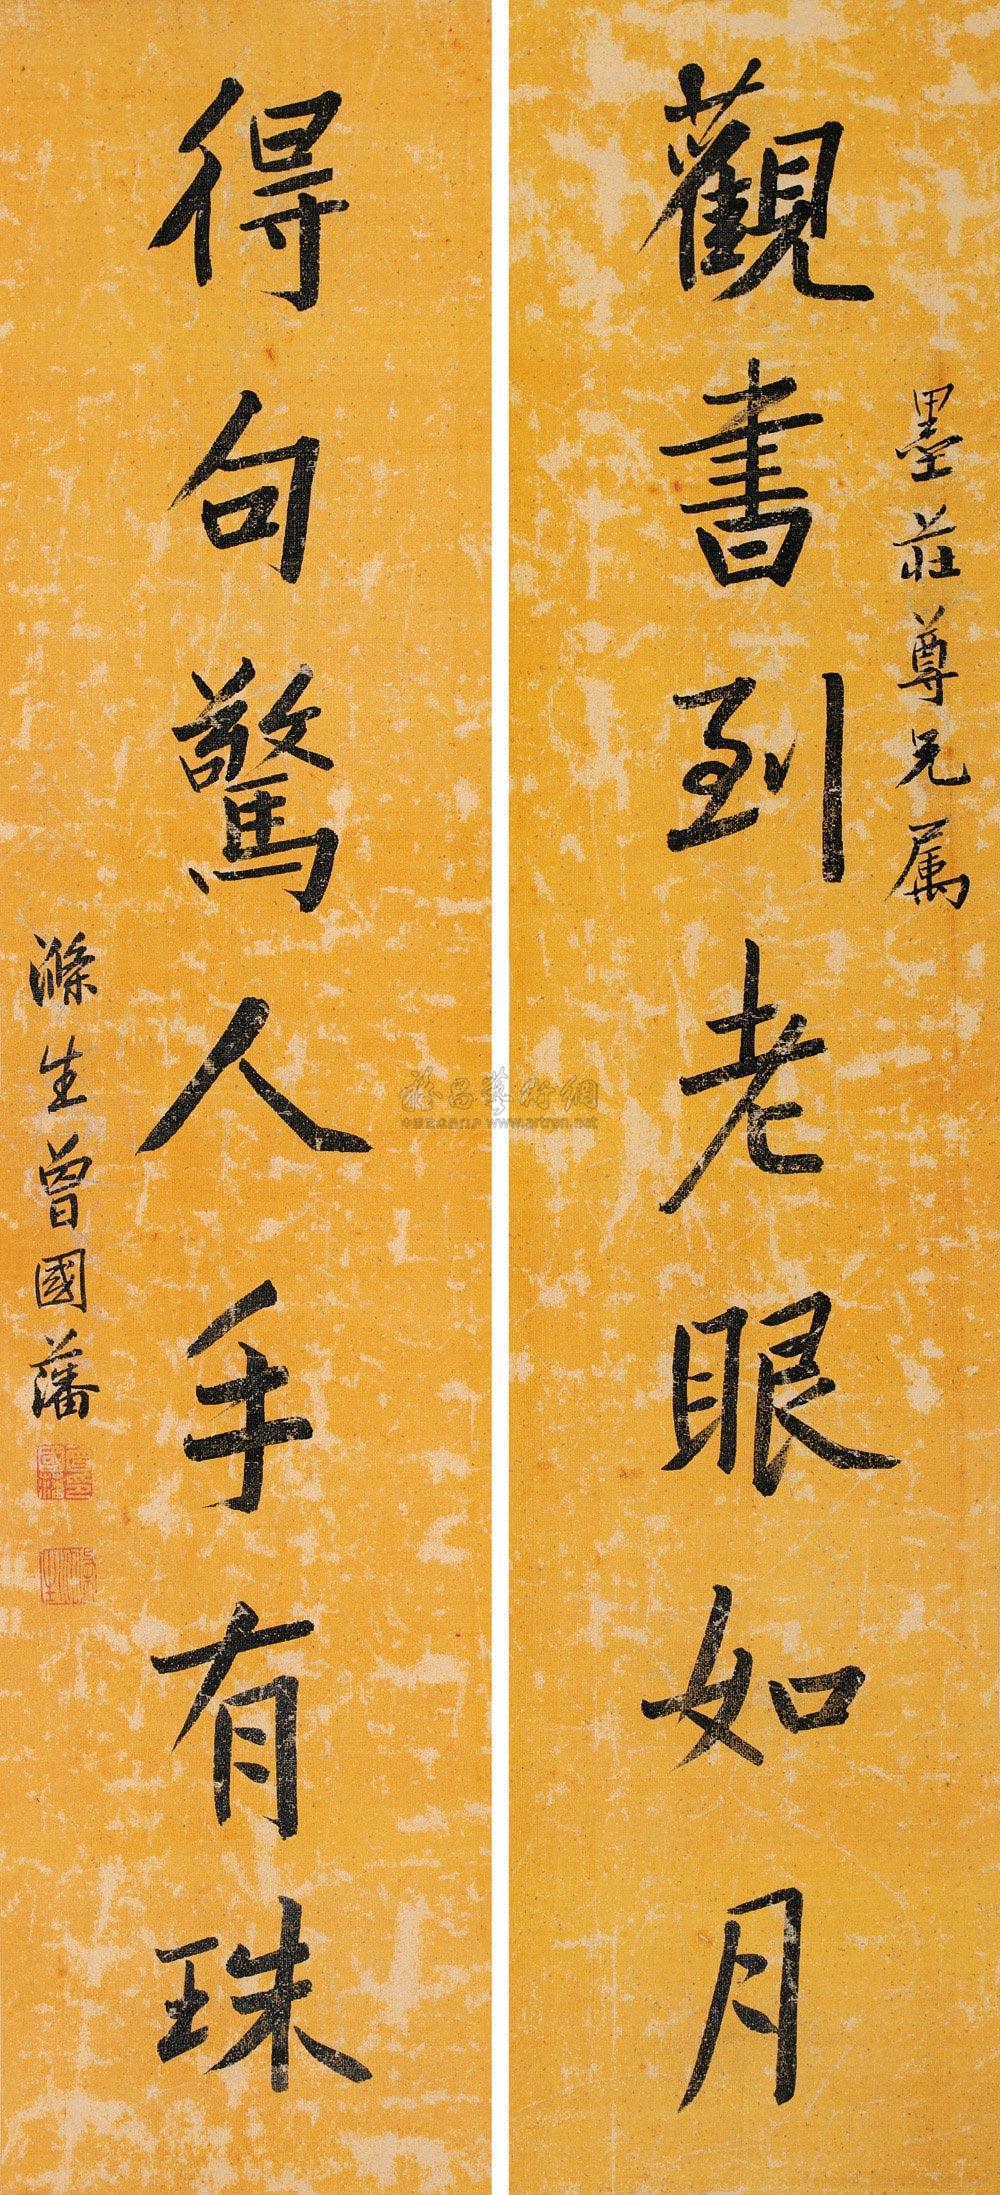 墨莊尊兄属
觀書到老眼如月
得句驚人手有珠
滌生曾國藩
雅昌藝術網
www.artron.net